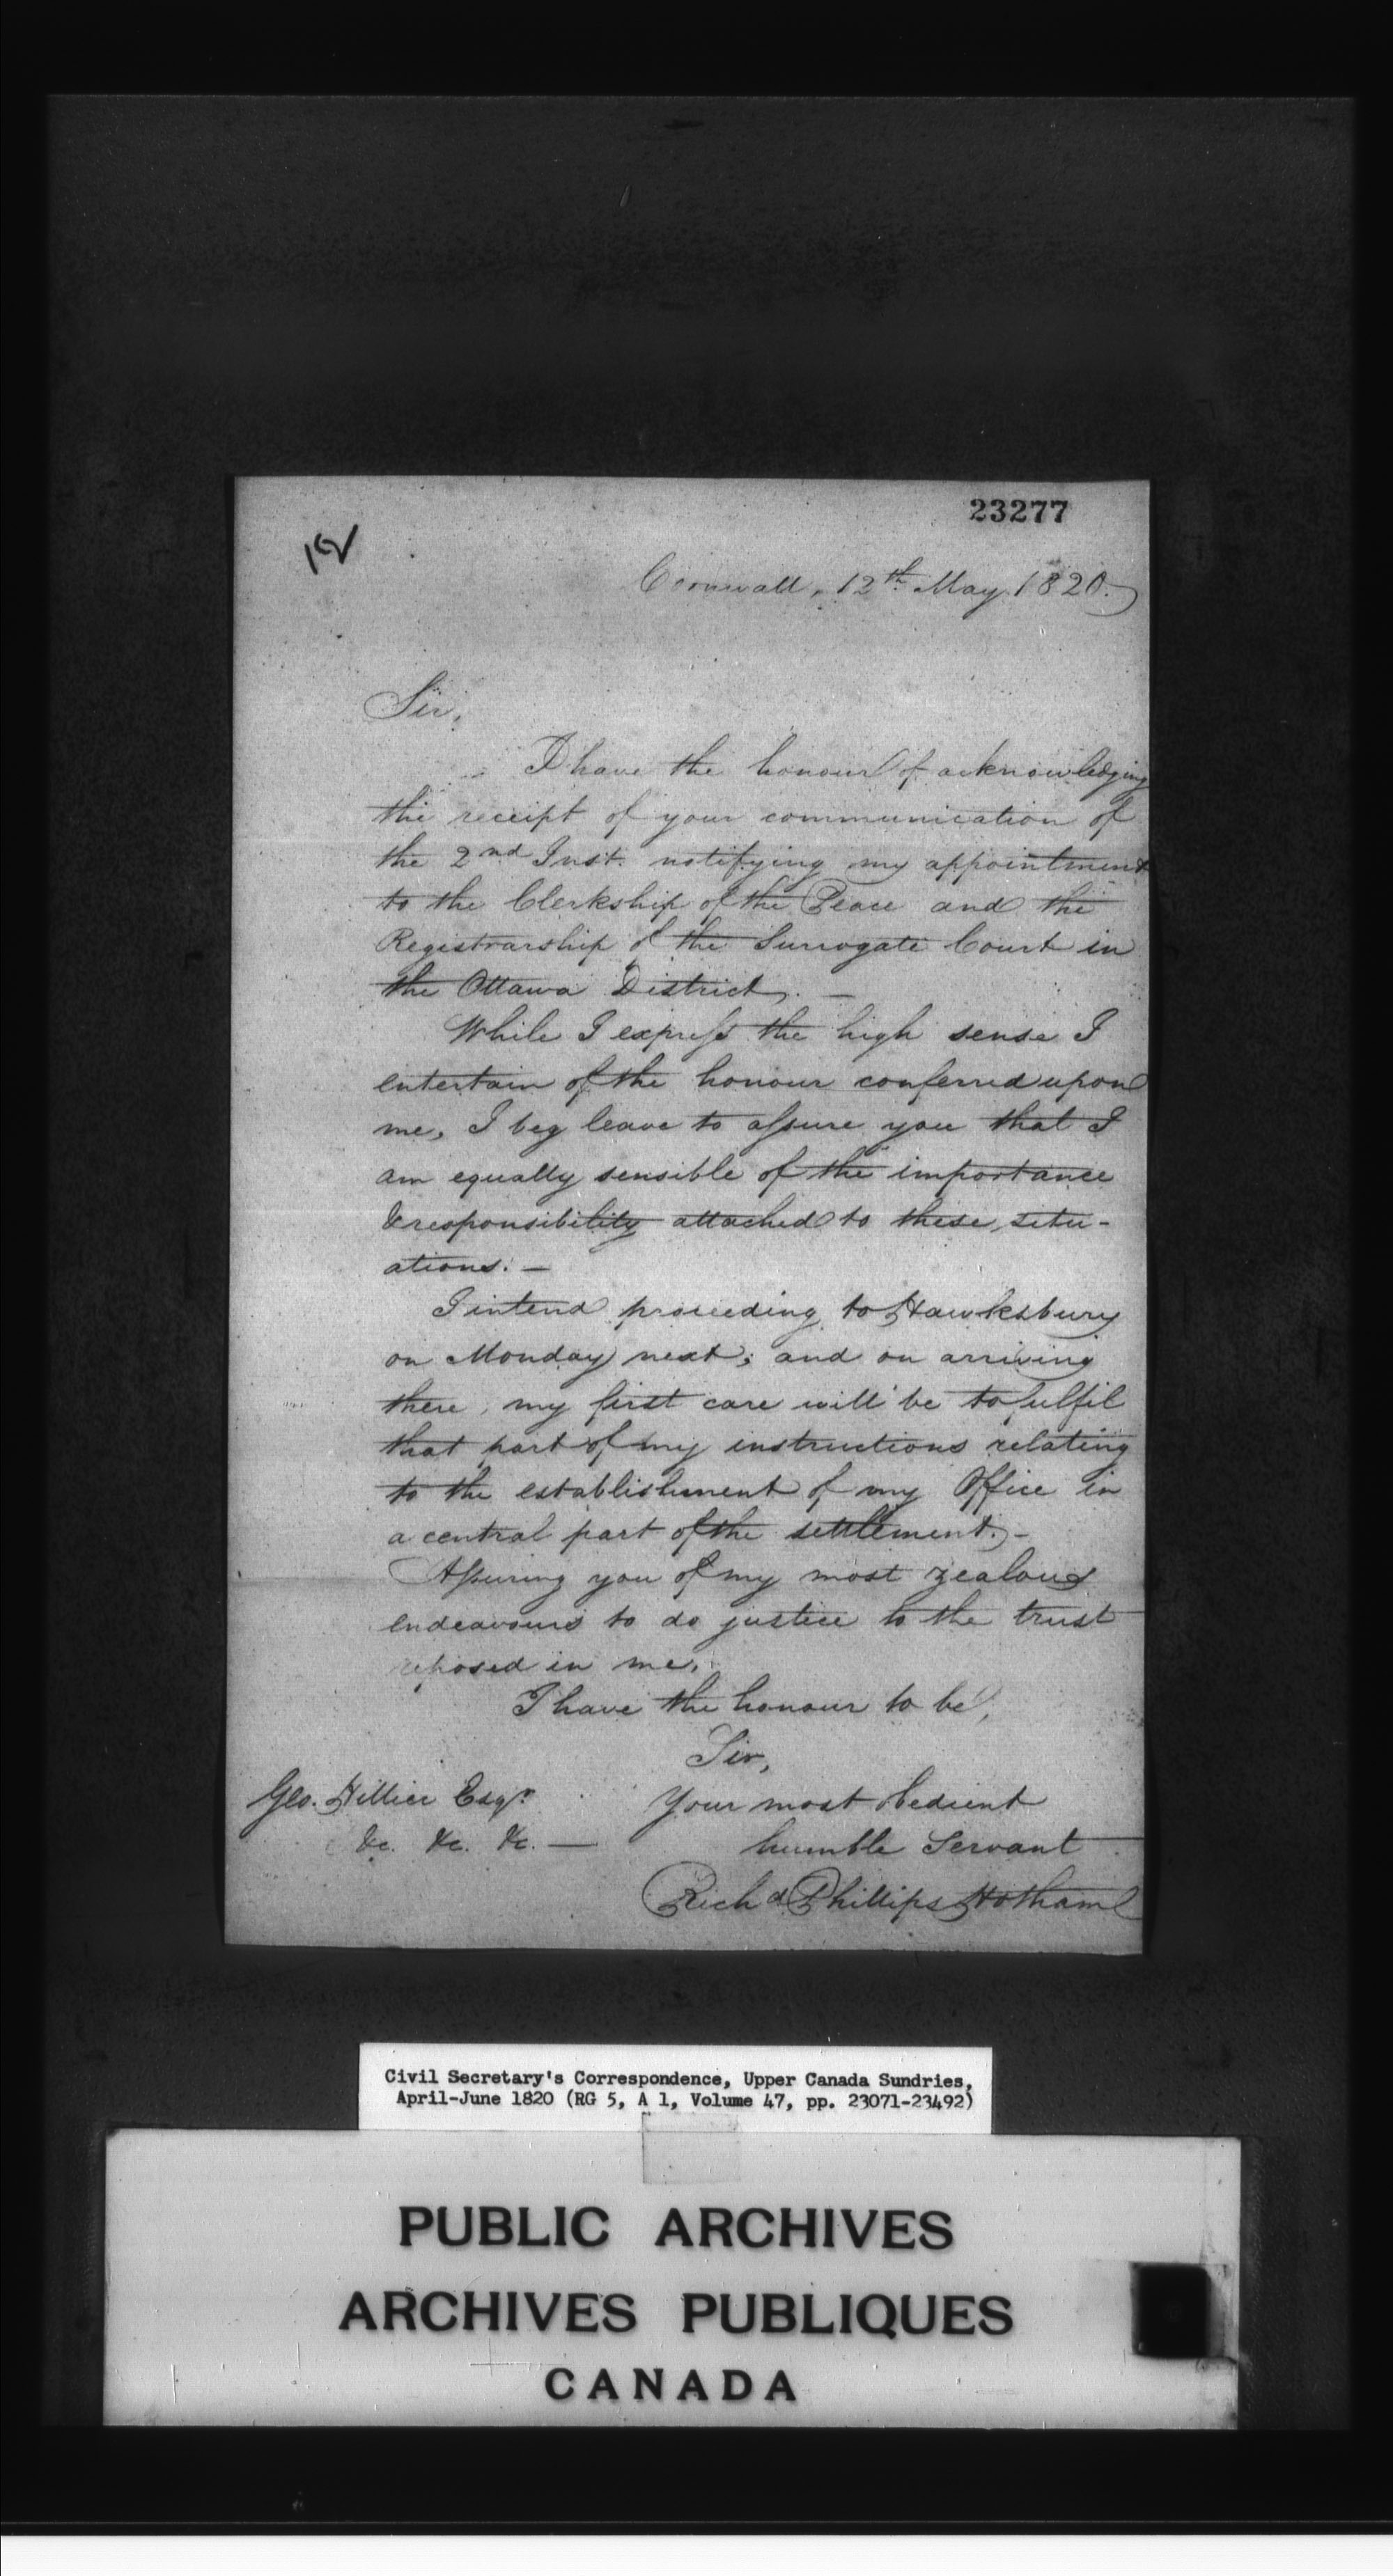 23277
12
Cornwall, 12th May 1820.
Sir,
I have the honour of acknowledging
the receipt of your communication of
the 2nd Inst. notifying my appointment
to the Clerkship of the Peace and the
Registrarship of the Surrogate Court in
the Ottawa District. —
While I express the high sense I
entertain of the honour conferred upon
me, I beg leave to assure you that I
am equally sensible of the importance
& responsibility attached to these situ-
ations. —
I intend proceeding to Hawksbury
on Monday next; and on arriving
there, my first care will be to fulfil
that part of my instructions relating
to the establishment of my Office in
a central part of the settlement. -
Assuring you of my most zealous
endeavours to do justice to the trust
reposed in me,
I have the honour to be,
Sir,
Geo. Hillier Esqr. Your most obedient
&c. &c. &c. — humble Servant
Richd Phillips Hotham
Civil Secretary's Correspondence, Upper Canada Sundries,
April-June 1820 (RG 5, A 1, Volume 47, pp. 23071-23492)
PUBLIC ARCHIVES
ARCHIVES PUBLIQUES
CANADA